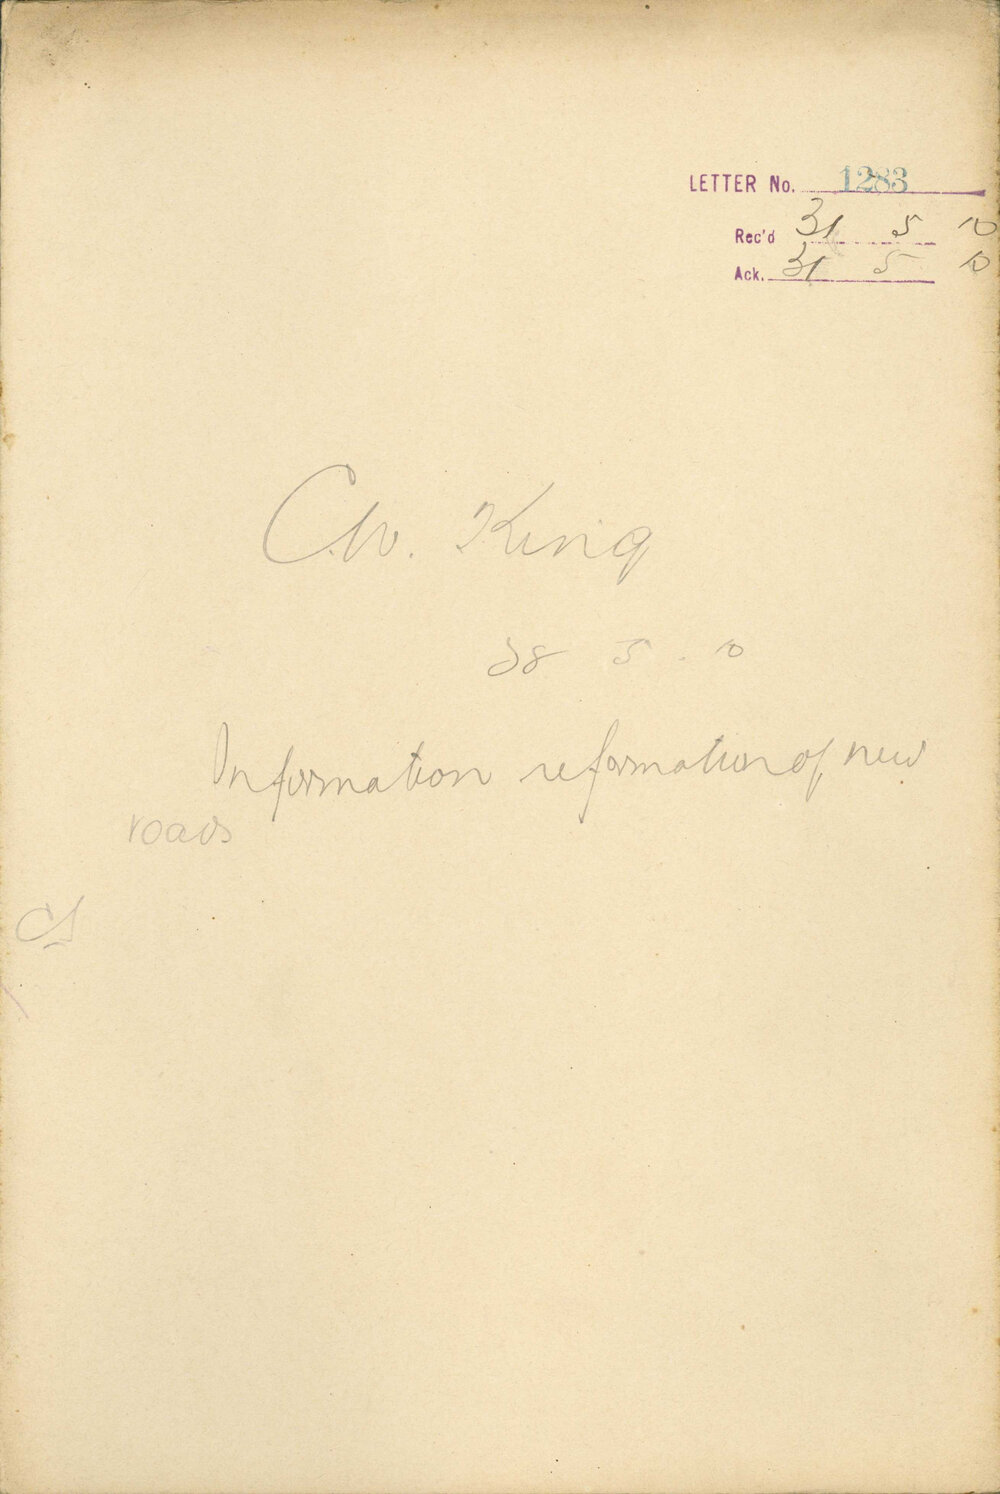 LETTER No. 1283
Rec'd 31 5 10
Ack. 31 5 10
C.W. King
28 5 . 10
Information re formation of new
roads